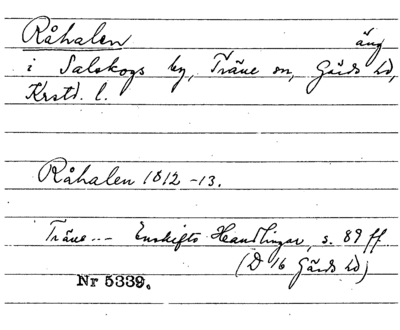 Råhalen äng
i Salskogs by, Träne sn, Gärds hd,
Krstd. l.
Råhalen 1812-13.
Träne -- Enskifts-Handlingar, s. 89 ff
(D 16 Gärds hd)
Nr 5339.